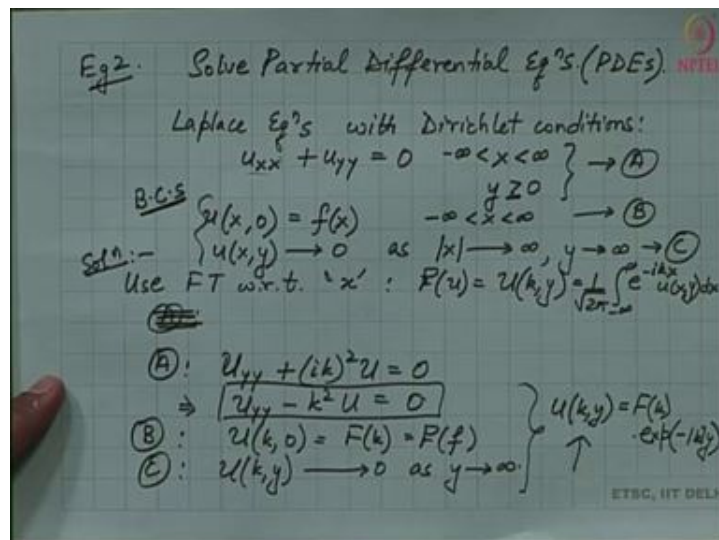 Eg 2. Solve Partial Differential Eqⁿs (PDEs).
NPTEL
Laplace Eqⁿs with Dirichlet conditions:
u_xx + u_yy = 0 -∞ < x < ∞ } → (A)
y ≥ 0
B.C.S
u(x, 0) = f(x) -∞ < x < ∞ → (B)
Solⁿ:- u(x, y) → 0 as |x| → ∞, y → ∞ → (C)
Use FT w.r.t. 'x' : F(u) = U(k, y) = 1/√2π ∫_{-∞}^{∞} e^{-ikx} u(x,y) dx
(A): U_yy + (ik)² U = 0
⇒ U_yy - k² U = 0
(B): U(k, 0) = F(k) = F(f)
(C): U(k, y) → 0 as y → ∞.
} U(k, y) = F(k)
. exp(-|k|y)
↑
ETSC, IIT DELH